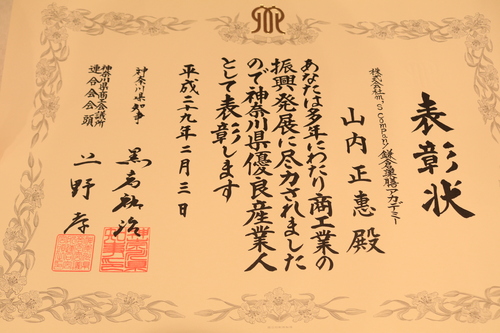 表彰状
株式会社m's company/鎌倉薬膳アカデミー
山内正惠殿
あなたは多年にわたり商工業の
振興発展に尽力されました
ので神奈川県優良産業人
として表彰します
平成二十九年二月三日
神奈川県知事
黒岩祐治
神奈川県商工会議所
連合会会頭
上野孝